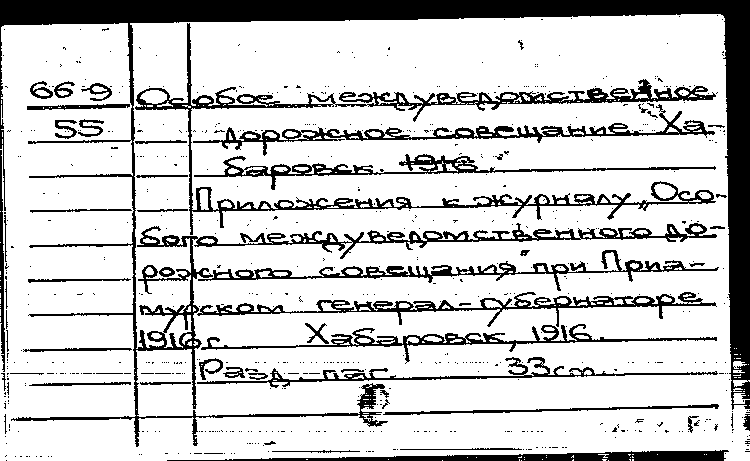 66-9 Особое междуведомственное
55 дорожное совещание. Ха-
баровск. 1916.
Приложения к журналу „Осо-
бого междуведомственного до-
рожного совещания" при Приа-
мурском генерал-губернаторе
1916 г. Хабаровск, 1916.
Разд. паг. 33 cm.